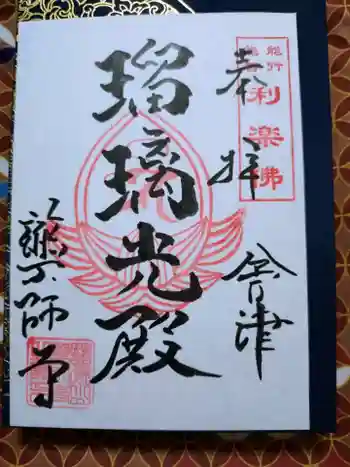 奉拝
會津
瑠璃光殿
薬師寺
利楽佛